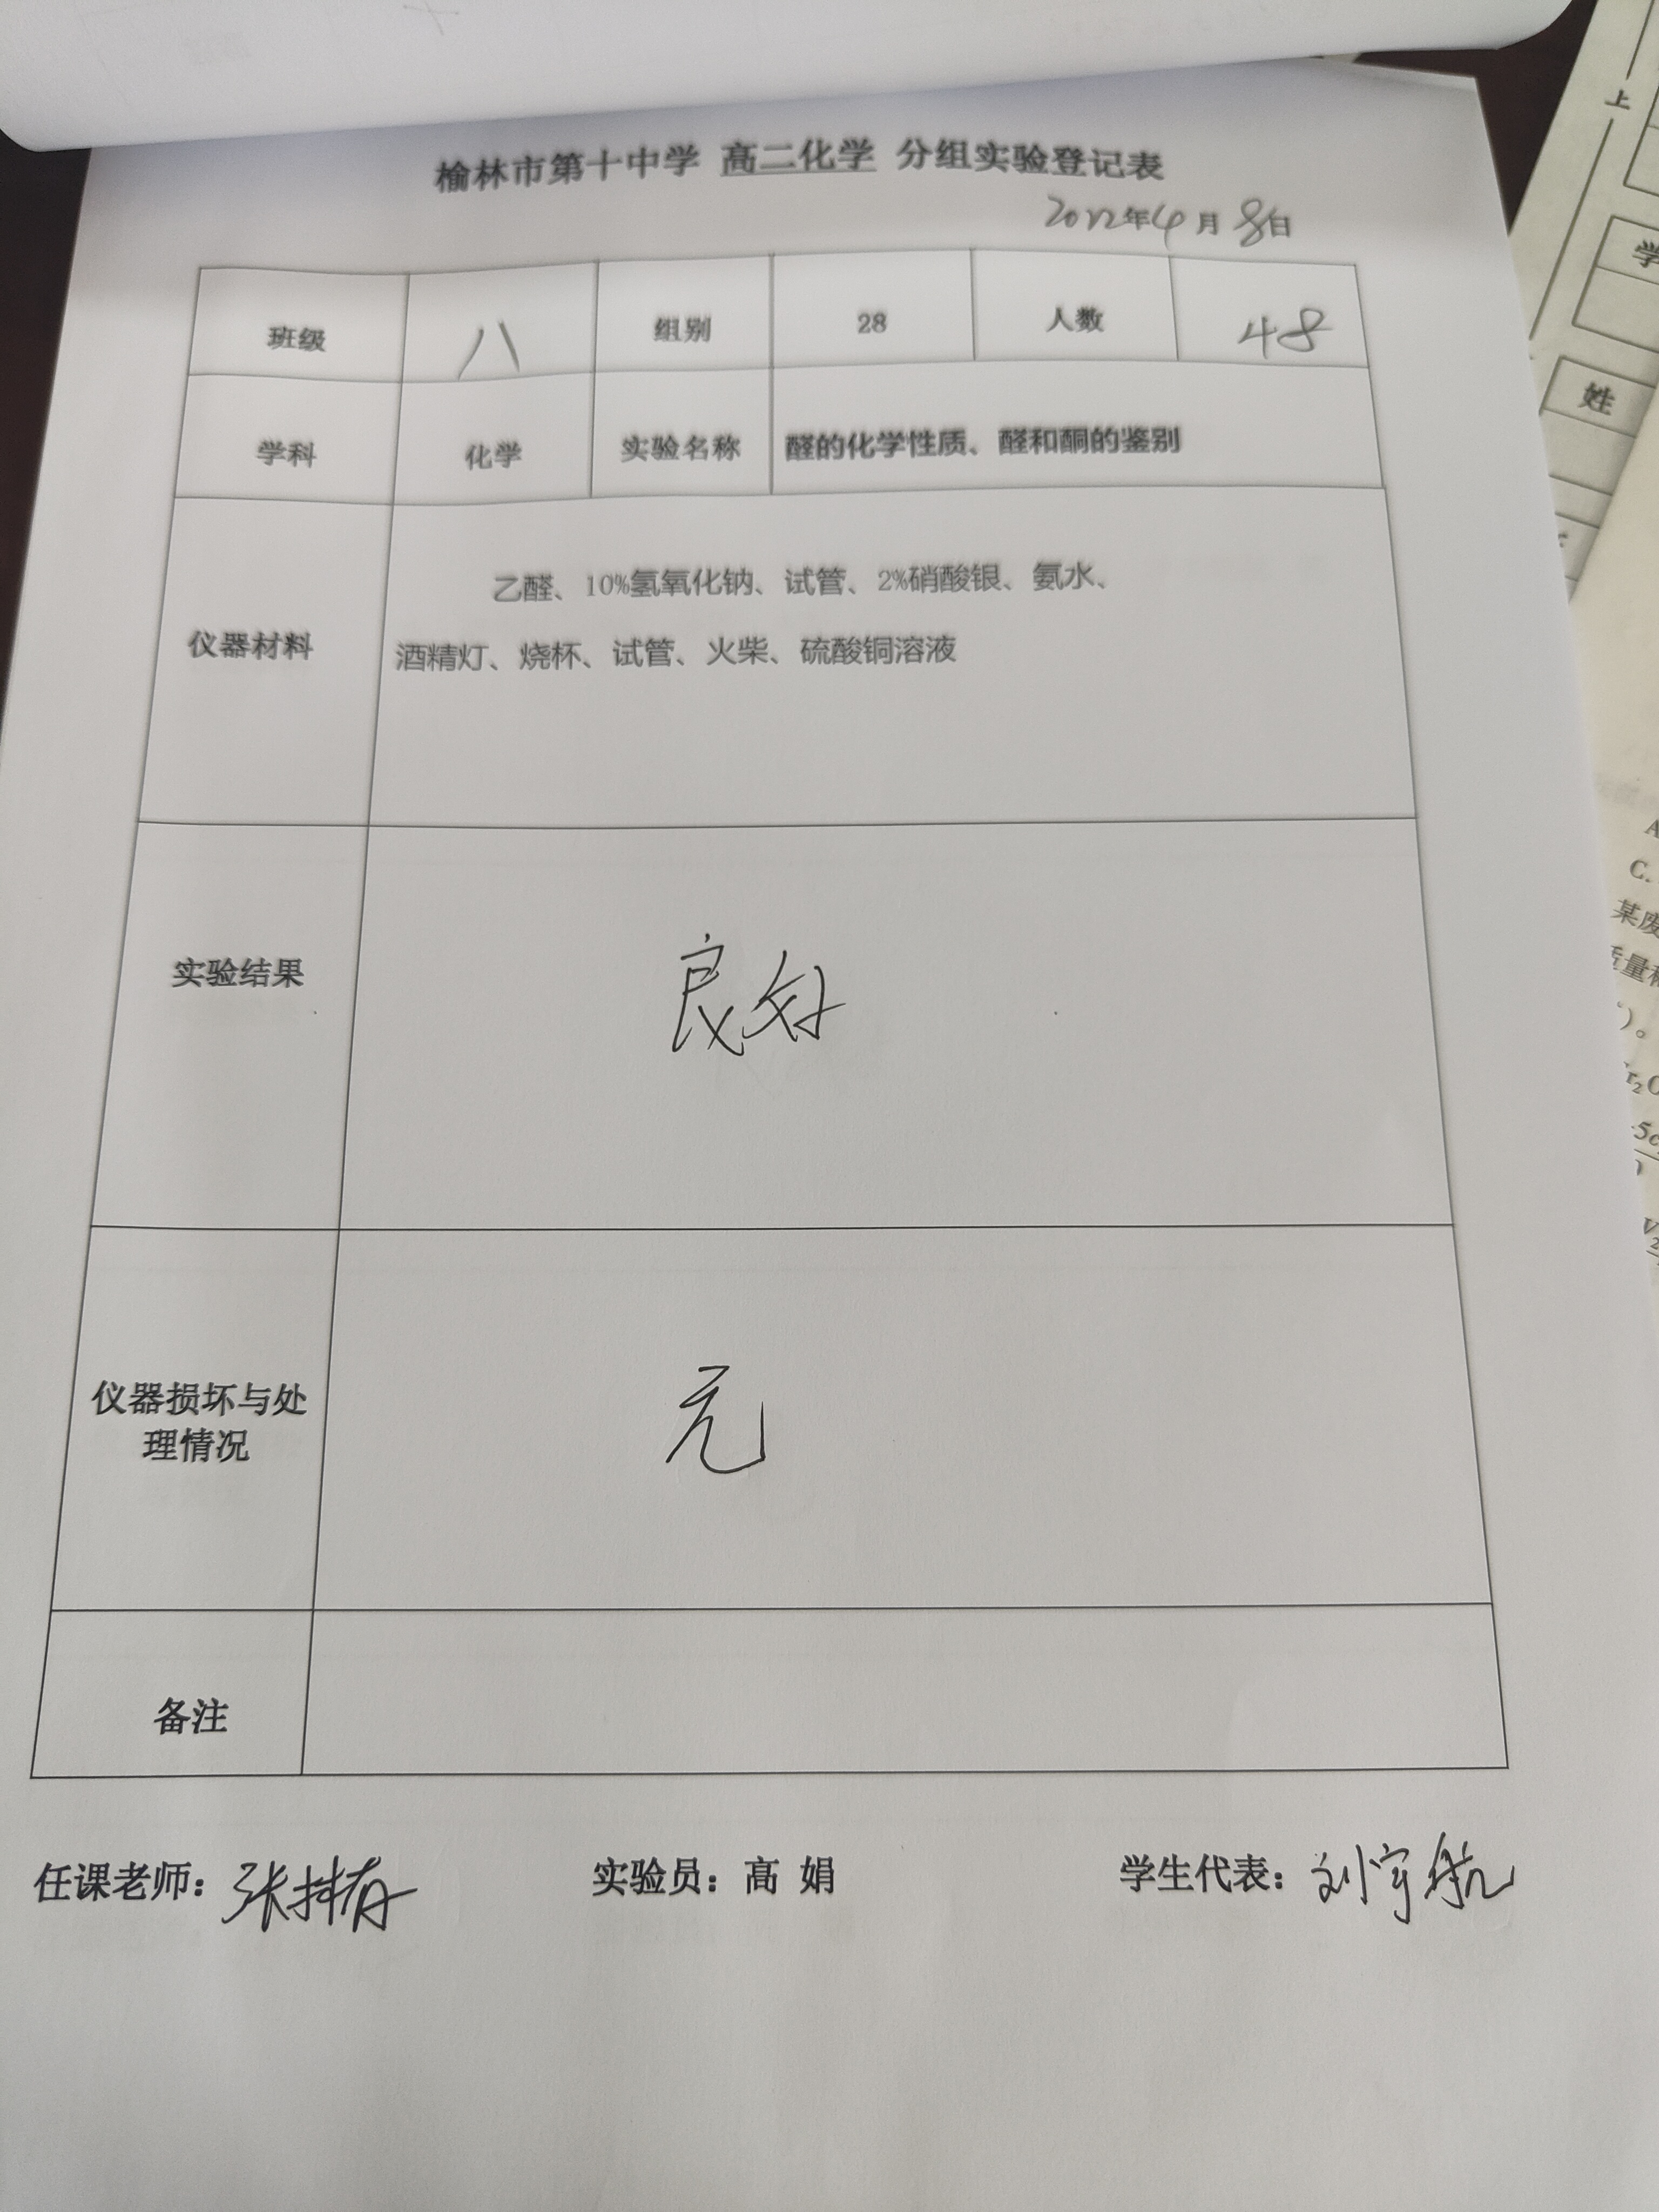 榆林市第十中学 高二化学 分组实验登记表
2022年4月8日
班级 八 组别 28 人数 48
学科 化学 实验名称 醛的化学性质、醛和酮的鉴别
仪器材料
乙醛、10%氢氧化钠、试管、2%硝酸银、氨水、
酒精灯、烧杯、试管、火柴、硫酸铜溶液
实验结果 良好
仪器损坏与处
理情况
无
备注
任课老师: 张 实验员: 高 娟 学生代表: 刘宇航
上
学
姓
A
C.
某废
质量
)。